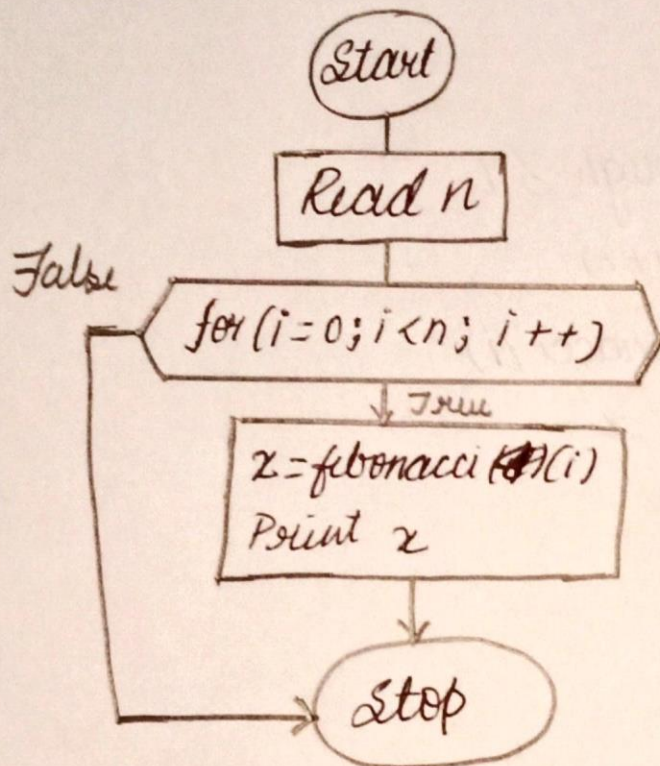 Start
Read n
False
for(i=0; i<n; i++)
True
x=fibonacci (i)
Print x
Stop